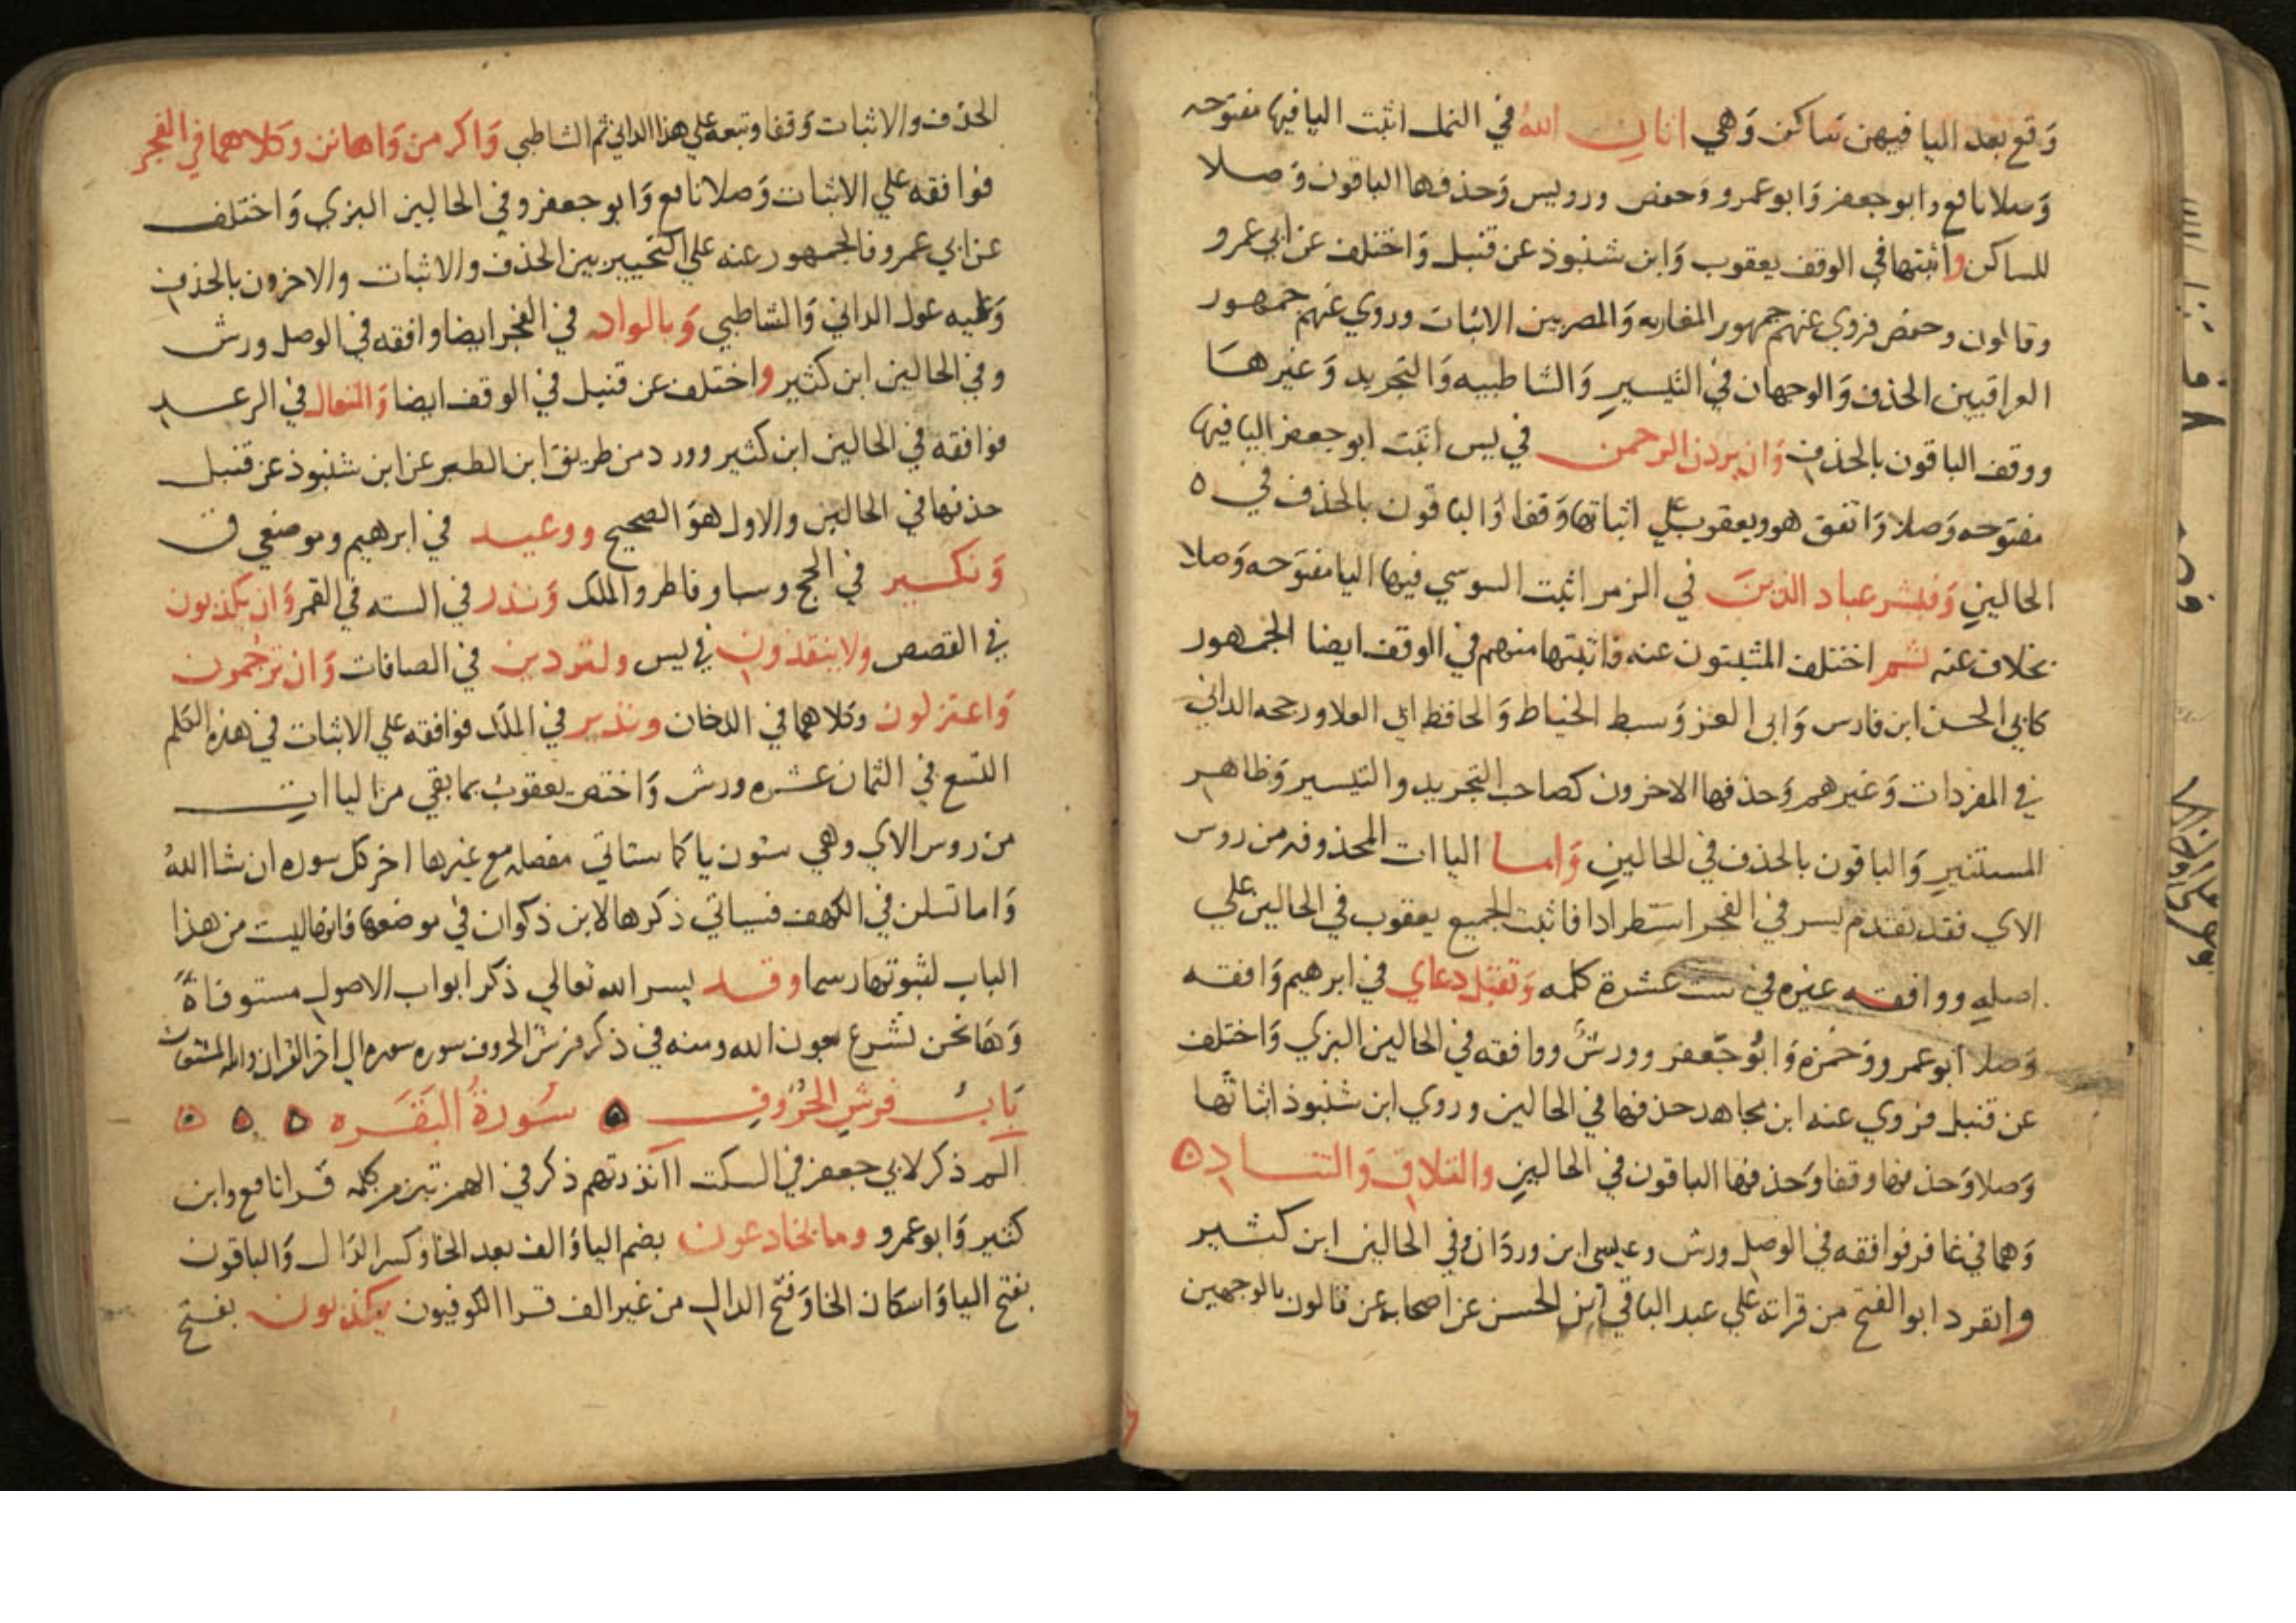 وَقع بعد اليا فيهن ساكن وَهي اتان الله في النمل اثبت اليا فيها مفتوحه
وَصلا نافع وابو جعفر وَابو عمرو وَحفص ورويس وَحذفها الباقون وَصلا
للساكن واثبتها في الوقف يعقوب وَابن شنبوذ عن قنبل وَاختلف عن ابي عمرو
وقالون وحفص فروي عنهم جمهور المغاربه وَالمصريين الاثبات وروي عنهم جمهور
العراقيين الحذف وَالوجهان في التيسير وَالشاطبيه وَالتجريد وَغيرهَا
ووقف الباقون بالحذف وَان يردن الرحمن في يس اثبت ابو جعفر اليا فيها
مفتوحه وَصلا وَاتفق هو ويعقوب علي اثباتها وَقفا وَالباقون بالحذف في ٥
الحالين وَفبشر عباد الذين في الزمر اثبت السوسي فيها اليا مفتوحه وَصلا
بخلاف عنه ثم اختلف المثبتون عنه فاثبتها منهم في الوقف ايضا الجمهور
كابي الحسن ابن فارس وَابي العز وَسبط الخياط وَالحافظ ابي العلا ورجحه الداني
في المفردات وَغيرهم وَحذفها الاخرون كصاحب التجريد والتيسير وَظاهر
المستنير وَالباقون بالحذف في الحالين وَاما الياات المحذوفه من روس
الاي فقد تقدم يسر في الفجر استطرادا فاثبت الجميع يعقوب في الحالين علي
اصله ووافقه غيره في ست عشرة كلمه وَتقبل دعاي في ابرهيم وَافقه
وَصلا ابو عمرو وَحَمزه وَابُو جَعفر وورشٌ ووافقه في الحالين البزي وَاختلف
عن قنبل فروي عنه ابن مجاهد حذفها في الحالين وروي ابن شنبوذ اثباتها
وَصلا وَحذفها وقفا وَحذفها الباقون في الحالين والتلاق وَالتناد ٥
وَهما في غافر فوافقه في الوصل ورش وعيسي ابن وردَان وفي الحالين ابن كثير
وانفرد ابو الفتح من قراته علي عبد الباقي ابن الحسن عن اصحابه عن قالون بالوجهين
الحذف والاثبات وَقفا وتبعه علي هذا الداني ثم الشاطبي وَاكرمن وَاهانن وكلاهما في الفجر
فوافقه علي الاثبات وَصلا نافع وَابو جعفر وفي الحالين البزي وَاختلف
عن ابي عمرو فالجمهور عنه علي التخيير بين الحذف والاثبات والاخرون بالحذف
وَعليه عول الداني وَالشاطبي وَبالواد في الفجر ايضا وافقه في الوصل ورش
وفي الحالين ابن كثير واختلف عن قنبل في الوقف ايضا وَالمتعال في الرعد
فوافقه في الحالين ابن كثير وورد من طريق ابن الطبر عن ابن شنبوذ عن قنبل
حذفها في الحالين والاول هوَ الصحيح ووعيد في ابرهيم وموضعي ق
وَنكير في الحج وسبا وفاطر والملك وَنذر في السته في القمر وَان يكذبون
في القصص ولا ينقذون في يس ولتردين في الصافات وَان ترجمون
وَاعتزلون وكلاهما في الدخان ونذير في الملك فوافقه علي الاثبات في هذه الكلم
التسع في الثمان عشره ورش وَاختص يعقوبُ بما بقي من الياات
من روس الاي وهي ستون يا كما ستاتي مفصله مع غيرها اخر كل سوره ان شا اللهُ
وَاما تسلن في الكهف فسياتي ذكرها لابن ذكوان في موضعها وَانها ليست من هذا
الباب لثبوتها رسما وقد يسر الله تعالي ذكر ابواب الاصول مستوفاةً
وَهَا نحن نشرع بعون الله ومنه في ذكر فرش الحروف سوره سوره الي اخر القران والله المستعان
بَابُ فرشِ الحُرُوفِ ٥ سُورَةُ البَقَره ٥ ٥ ٥ ٥
الم ذكر لابي جعفر في السكت اانذرتهم ذكر في الهمزتين من كلمه قرا نافع وابن
كثير وَابو عمرو وما يخادعون بضم اليا وَالف بعد الخا وكسر الدَال وَالباقون
بفتح اليا وَاسكان الخا وَفتح الدال من غير الف قرا الكوفيون يكذبون بفتح